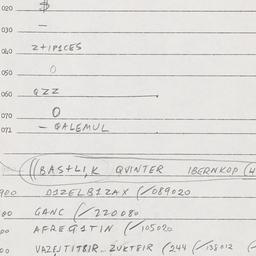 020 $
030 –
040 Z+IPICES
050 O
060 QZZ
070 O
071 – QALEMUL
BAS+LI,K QVINTER IBERNKOP (H
DIZELBIZAX (/089020
GANC (/220080
AFREGITIN (/105020
ZUKTBIR (244 (/138012